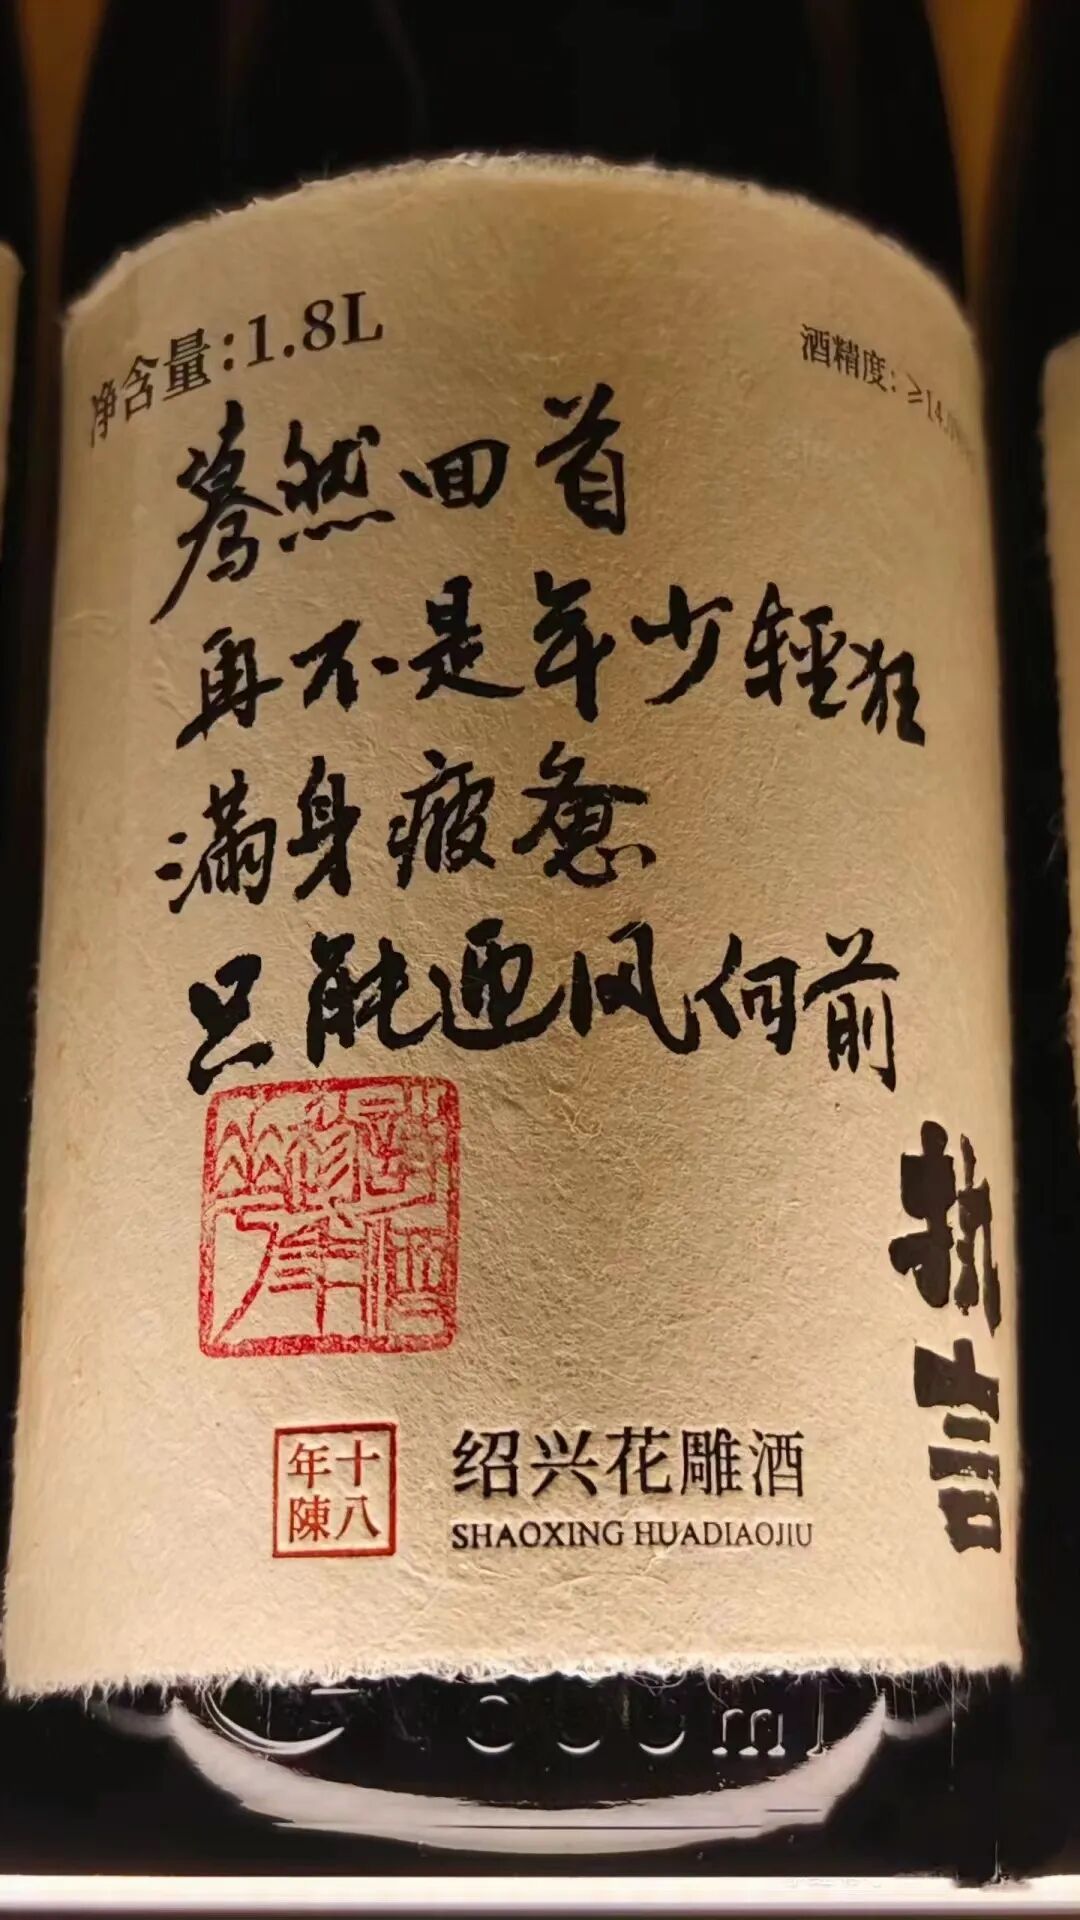 净含量:1.8L
酒精度:≥14.
蓦然回首
再不是年少輕狂
滿身疲惫
只能迎风向前
执言
十八
年陳
绍兴花雕酒
SHAOXING HUADIAOJIU